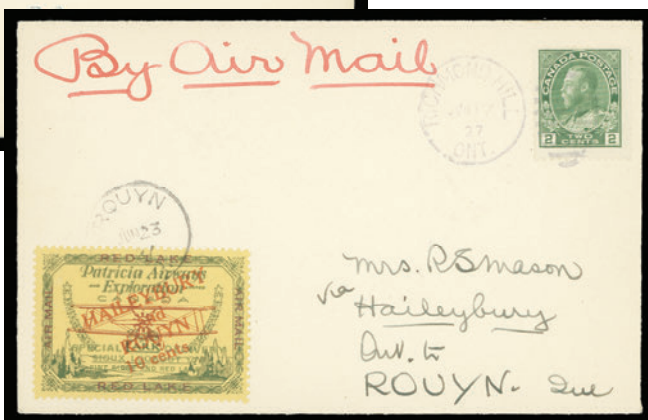 By Air Mail
RICHMOND HILL
27
ONT.
CANADA POSTAGE
2 TWO CENTS 2
ROUYN
JUN 23
RED LAKE
Patricia Airways
Exploration
AIR MAIL
HAILEYBURY
and
ROUYN
10 cents
SPECIAL
SIOUX LOOKOUT
RED LAKE
Mrs. R S Mason
via Haileybury
Ont. to
ROUYN. Que